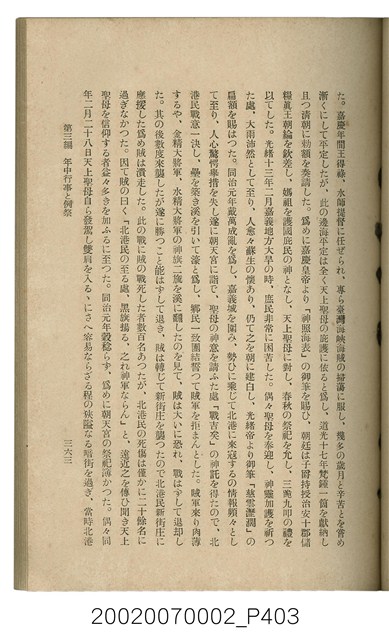 た。嘉慶年間王得祿、水師提督に任ぜられ、專ら臺灣海峽海賊の掃蕩に服し、幾多の歲月と辛苦とを嘗め
漸くにして平定したが、此の邊海平定は全く天上聖母の庇護に依ると爲し、道光十七年梵鐘一箇を獻納し
且つ淸朝に勅額を奏請した。爲めに嘉慶皇帝より「神照海表」の御筆を賜ひ、朝廷は子爵持授治安十郡儲
糧眞王朝綸を欽差し、媽祖を護國庇民の神となし、天上聖母に對し、春秋の祭祀を允し、三跪九叩の禮を
以てした。光緖十三年二月嘉義地方大旱の時、庶民非常に困苦した。偶々聖母を奉迎し、神靈加護を祈つ
た處、大雨沛然として至り、人愈々蘇生の懷あり、仍て之を朝に建白し、光緖帝より御筆「慈雲灑潤」の
扁額を賜はつた。同治元年戴萬成亂を爲し、嘉義城を圍み、勢ひに乘じて北港に來寇するの情報頻々とし
て至り、人心驚愕擧措を失し遂に朝天宮に詣で、聖母の神意を請ふた處「戰吉矣」の神託を得たので、北
港民戰意一に決し、壘を築き溪を引いて濠と爲し、鄕民一致團結誓つて賊軍を拒まんとした。賊軍來り肉薄
するや、金精大將軍、水精大將軍の神旗二旒を溪に飜したのを見て、賊は大いに恐れ、戰はずして退却し
た。其の後數度來襲したが遂に勝つこと能はずして退き、賊は轉じて新街庄を襲つたので北港民新街庄に
應援した爲め賊は潰走した。此の戰に賊の戰死した者數百名あつたが、北港民の死傷は僅かに二十餘名に
過ぎなかつた。因て賊の曰く「北港民の至る處、黑旗揚る、之れ神軍ならん」と、遠近之を傳ひ聞き天上
聖母を信仰する者益々多きを加ふるに至つた。同治元年穀稔らず、爲めに朝天宮の祭祀薄かつた。偶々同
年二月二十八日天上聖母自ら發駕し雙肩を入るゝにさへ容易ならざる程の狹隘なる暗街を過ぎ、當時北港
第三編　年中行事と例祭
三六三
20020070002_P403